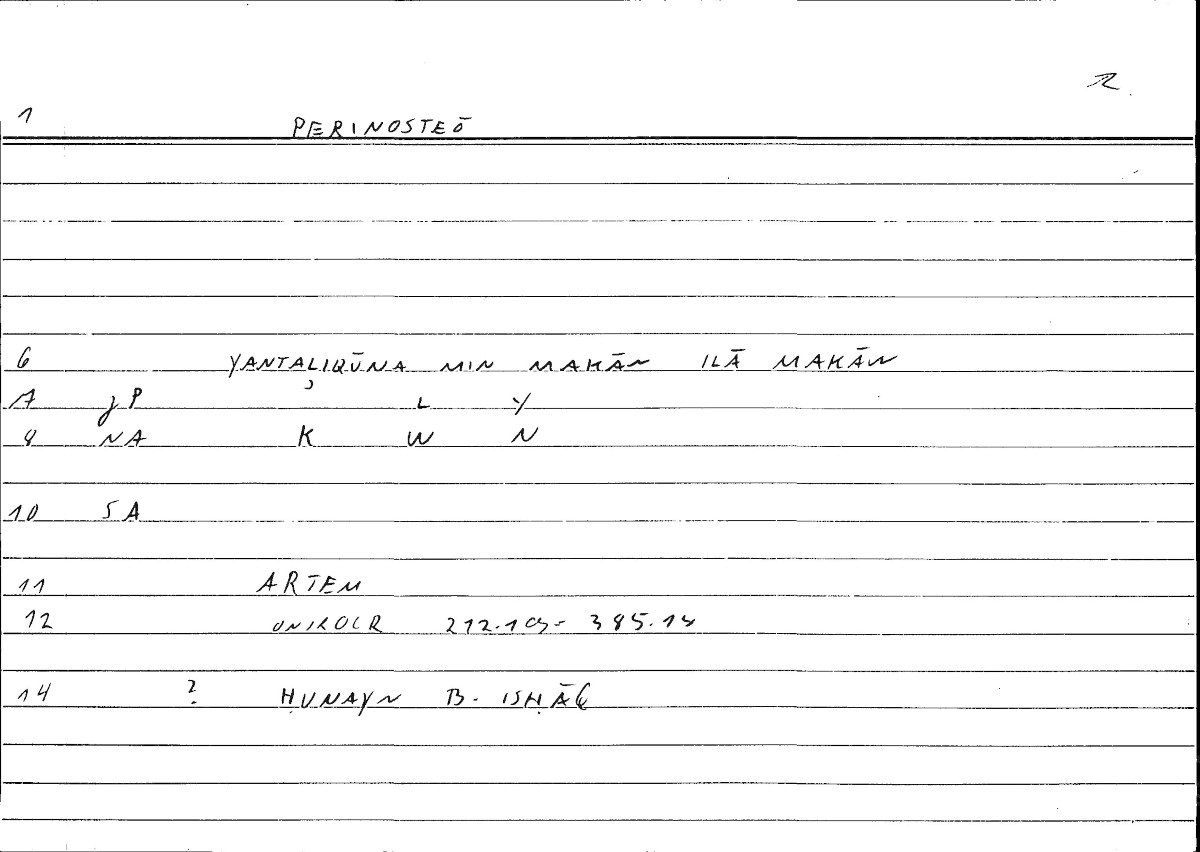 1 PERINOSTEŌ
6 YANTALIQŪNA MIN MAKĀN ILĀ MAKĀN
7 jP ʾ L Y
8 NA K W N
10 SA
11 ARTEM
12 ONIROCR 212.19 - 385.14
14 ? ḤUNAYN B. ISḤĀQ